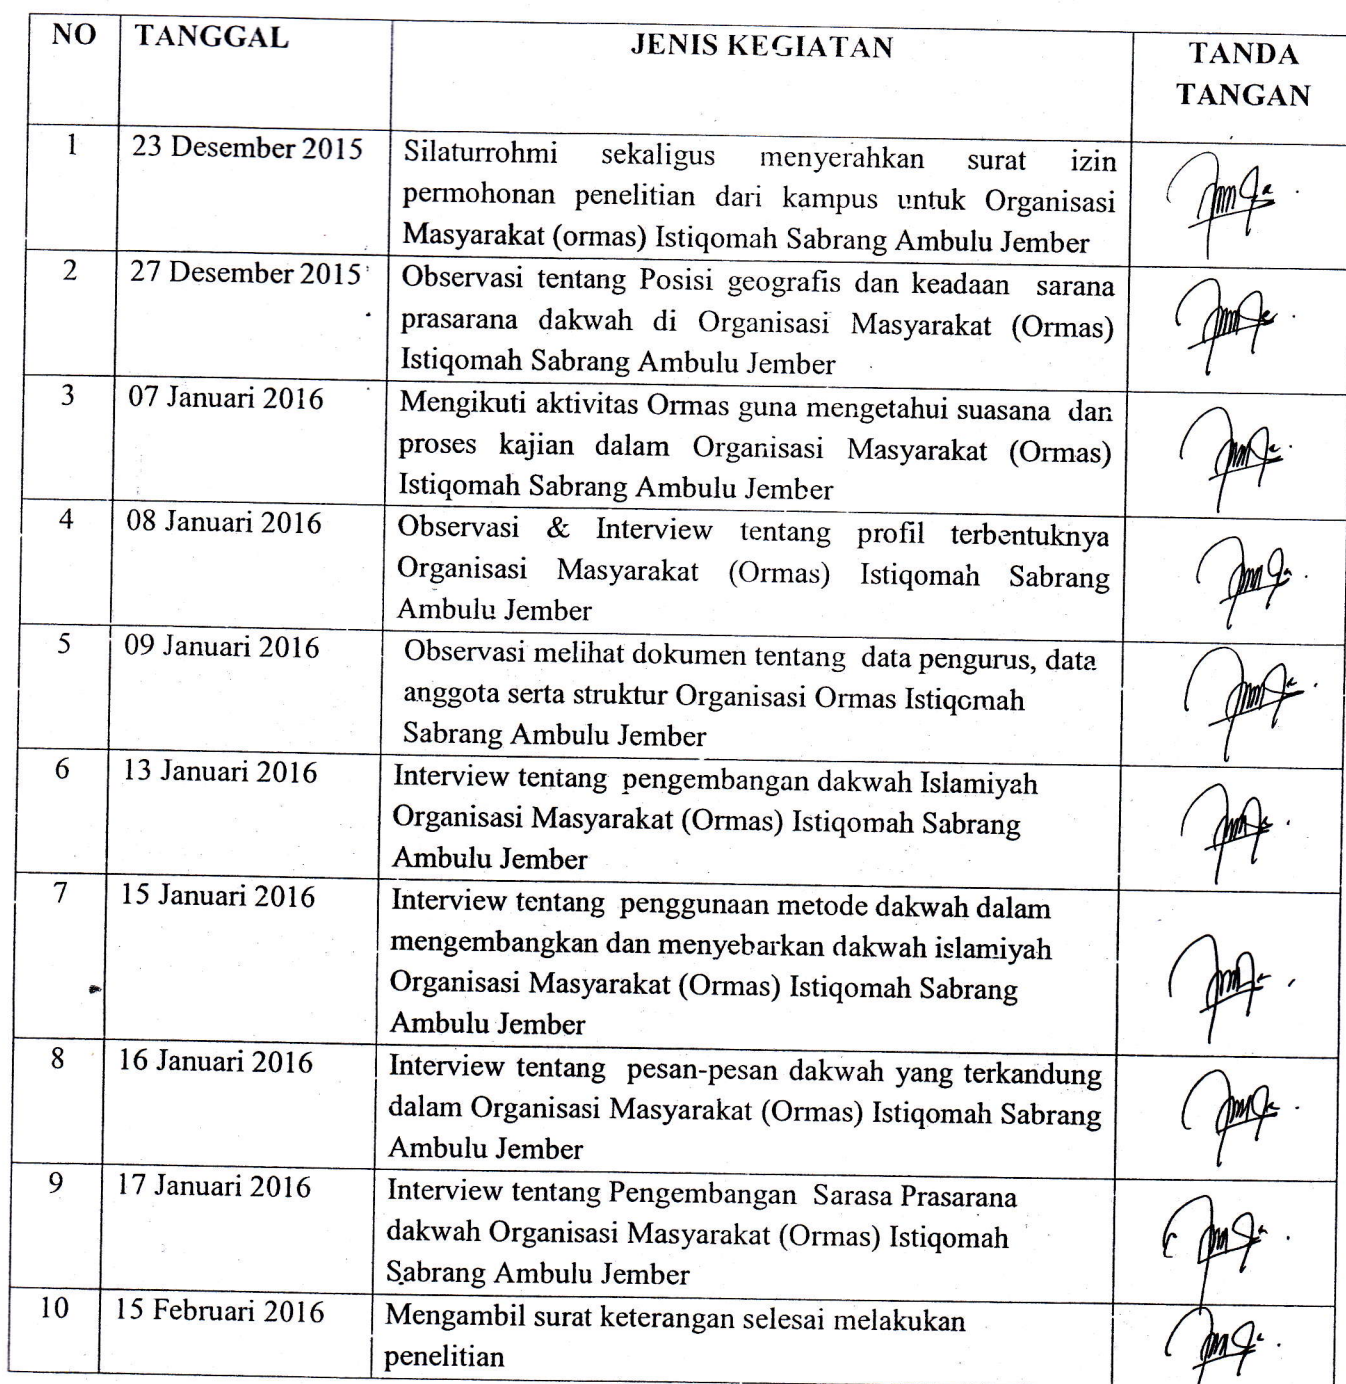 NO TANGGAL JENIS KEGIATAN TANDA
TANGAN
1 23 Desember 2015 Silaturrohmi sekaligus menyerahkan surat izin
permohonan penelitian dari kampus untuk Organisasi
Masyarakat (ormas) Istiqomah Sabrang Ambulu Jember
2 27 Desember 2015 Observasi tentang Posisi geografis dan keadaan sarana
prasarana dakwah di Organisasi Masyarakat (Ormas)
Istiqomah Sabrang Ambulu Jember
3 07 Januari 2016 Mengikuti aktivitas Ormas guna mengetahui suasana dan
proses kajian dalam Organisasi Masyarakat (Ormas)
Istiqomah Sabrang Ambulu Jember
4 08 Januari 2016 Observasi & Interview tentang profil terbentuknya
Organisasi Masyarakat (Ormas) Istiqomah Sabrang
Ambulu Jember
5 09 Januari 2016 Observasi melihat dokumen tentang data pengurus, data
anggota serta struktur Organisasi Ormas Istiqomah
Sabrang Ambulu Jember
6 13 Januari 2016 Interview tentang pengembangan dakwah Islamiyah
Organisasi Masyarakat (Ormas) Istiqomah Sabrang
Ambulu Jember
7 15 Januari 2016 Interview tentang penggunaan metode dakwah dalam
mengembangkan dan menyebarkan dakwah islamiyah
Organisasi Masyarakat (Ormas) Istiqomah Sabrang
Ambulu Jember
8 16 Januari 2016 Interview tentang pesan-pesan dakwah yang terkandung
dalam Organisasi Masyarakat (Ormas) Istiqomah Sabrang
Ambulu Jember
9 17 Januari 2016 Interview tentang Pengembangan Sarasa Prasarana
dakwah Organisasi Masyarakat (Ormas) Istiqomah
Sabrang Ambulu Jember
10 15 Februari 2016 Mengambil surat keterangan selesai melakukan
penelitian